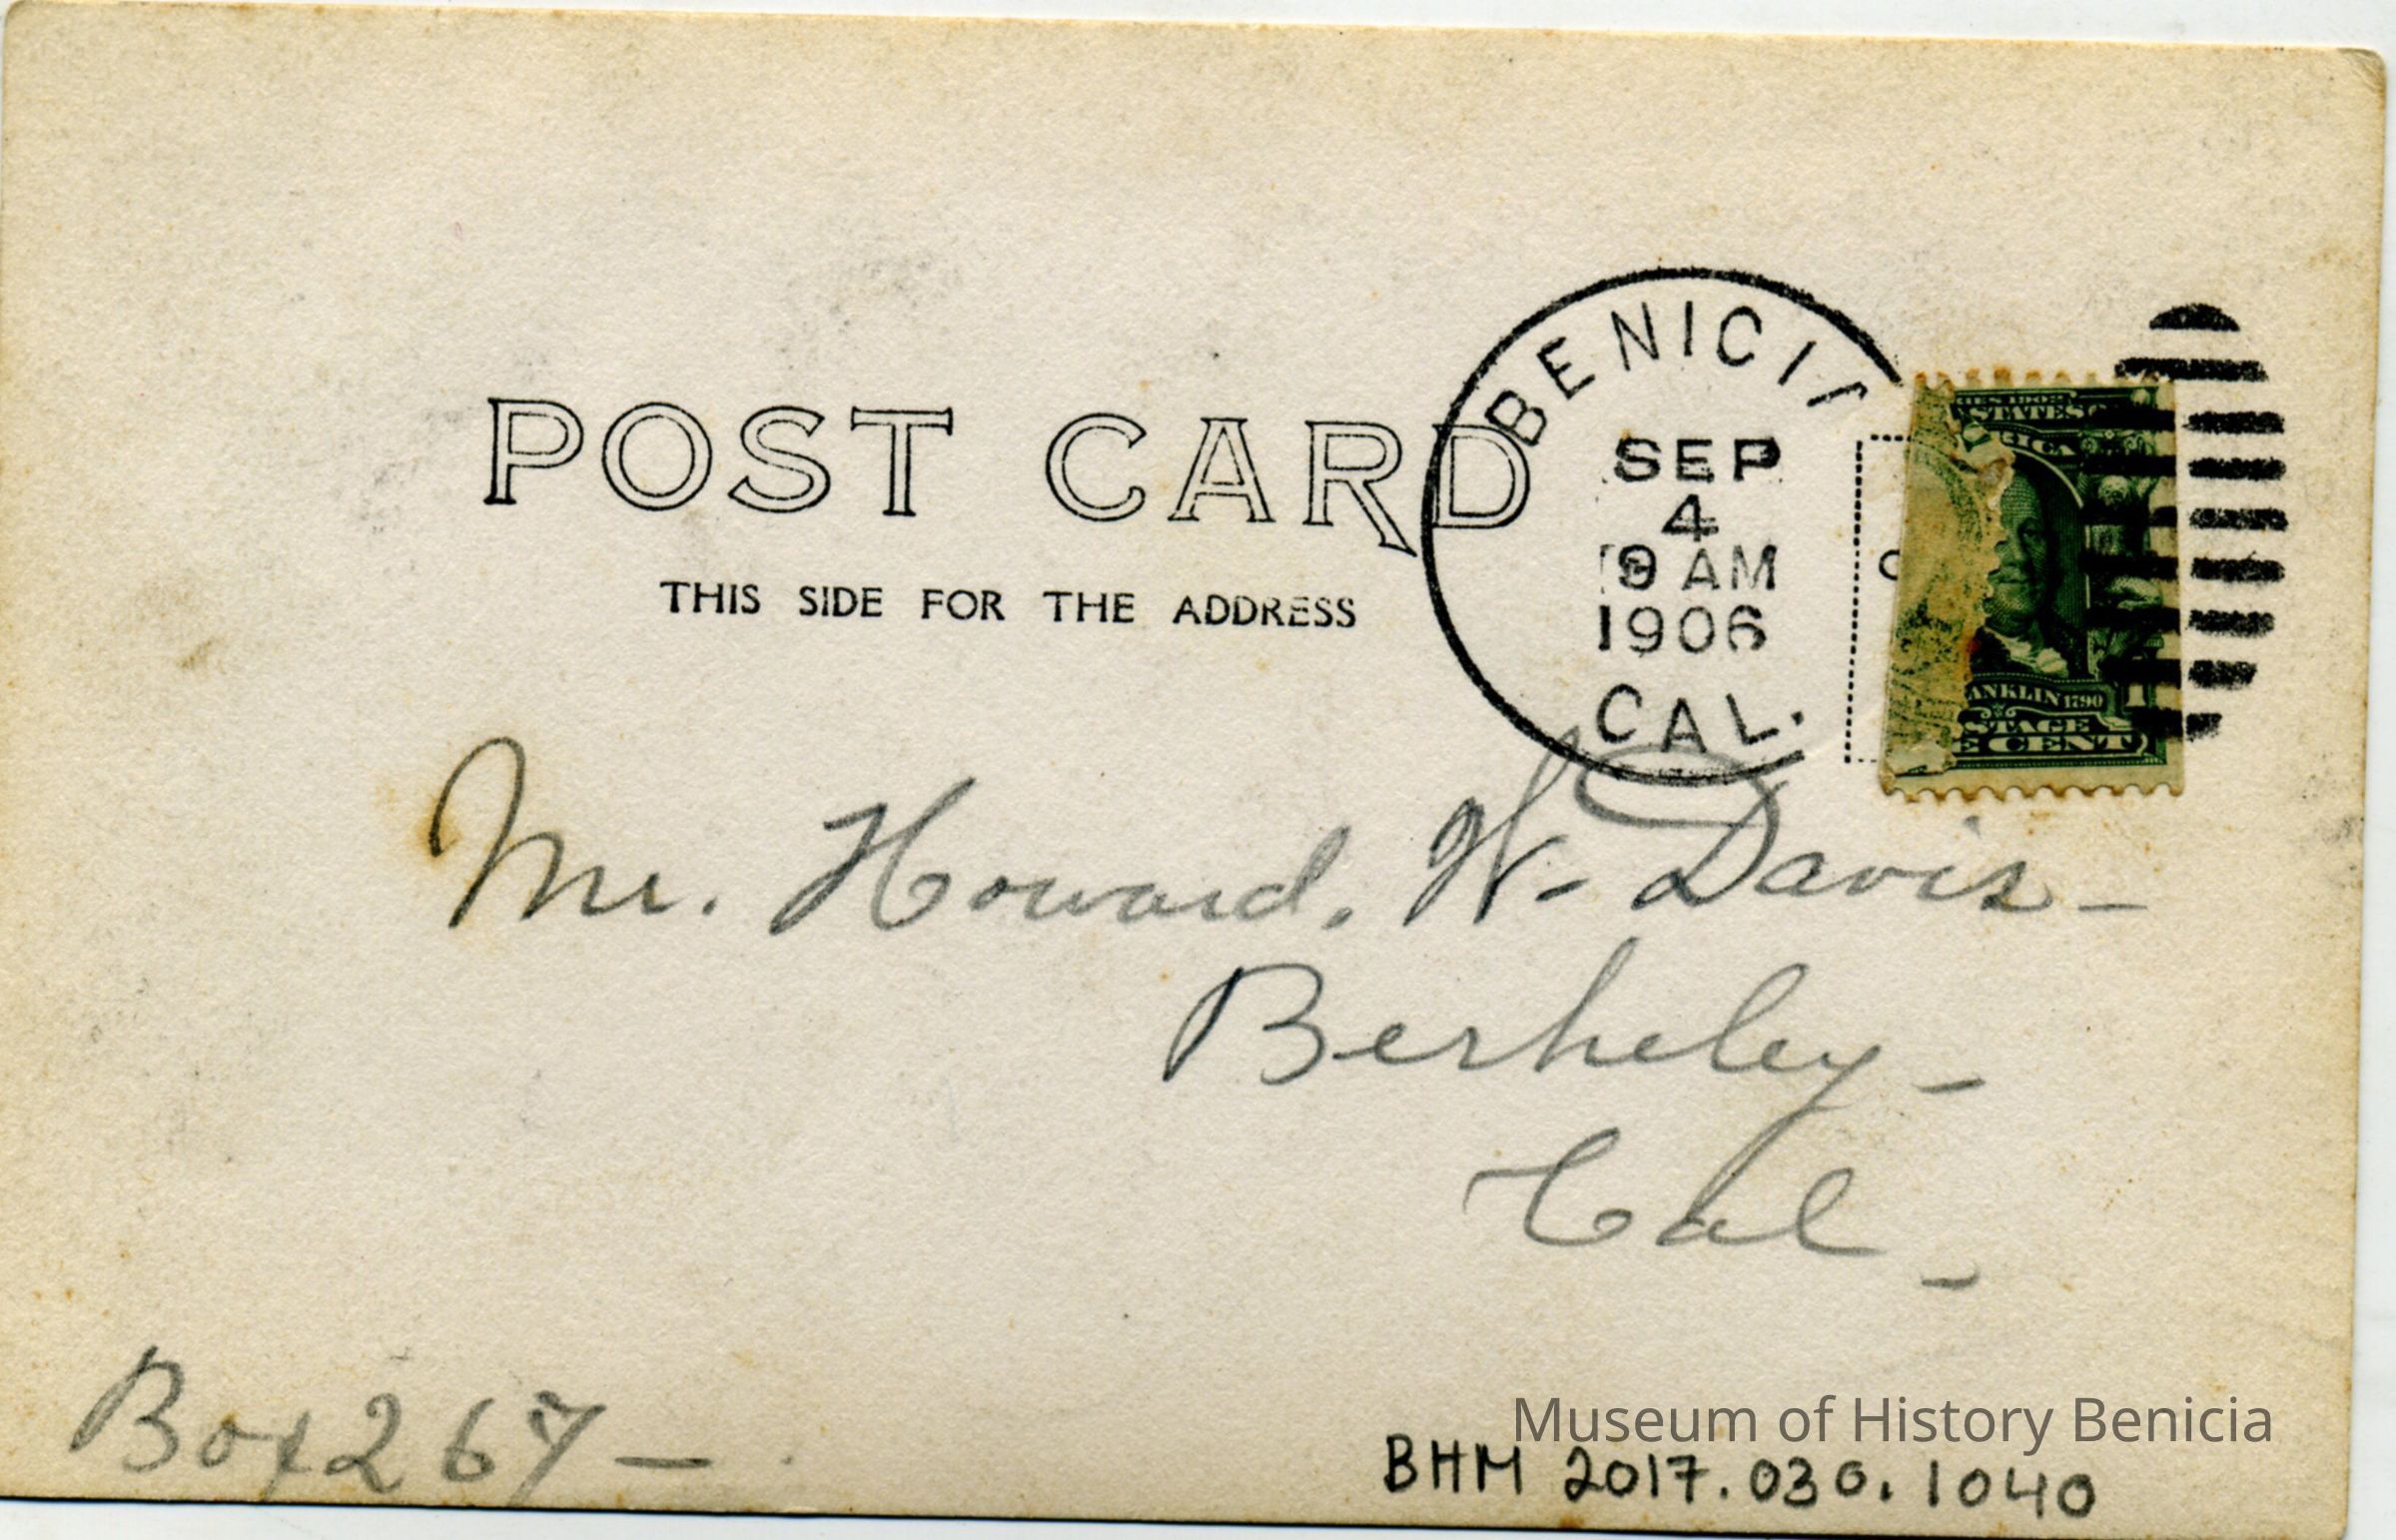 POST CARD
THIS SIDE FOR THE ADDRESS
BENICIA
SEP
4
9 AM
1906
CAL.
STATES
ANKLIN 1790
STAGE
E CENT
Mr. Howard. W- Davis-
Berkeley-
Cal-
Box 267-
Museum of History Benicia
BHM 2017.030.1040